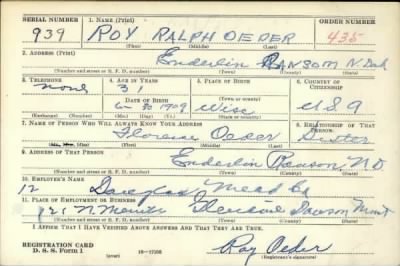 SERIAL NUMBER 1. NAME (Print) ORDER NUMBER
939 ROY RALPH OEDER 435
(First) (Middle) (Last)
2. ADDRESS (Print)
Enderlin RANSOM N. Dak
(Number and street or R. F. D. number) (Town) (County) (State)
3. TELEPHONE 4. AGE IN YEARS 5. PLACE OF BIRTH 6. COUNTRY OF CITIZENSHIP
none 31
DATE OF BIRTH (Town or county)
1909 Wisc U S A
(Exchange) (Number) (Mo.) (Day) (Yr.) (State or country)
7. NAME OF PERSON WHO WILL ALWAYS KNOW YOUR ADDRESS 8. RELATIONSHIP OF THAT PERSON
Florence Oeder Sister
(First) (Middle) (Last)
9. ADDRESS OF THAT PERSON
Enderlin Ransom, N D
(Number and street or R. F. D. number) (Town) (County) (State)
10. EMPLOYER'S NAME
Mead Co
11. PLACE OF EMPLOYMENT OR BUSINESS
121 N. Glendive Dawson Mont
(Number and street or R. F. D. number) (Town) (County) (State)
I AFFIRM THAT I HAVE VERIFIED ABOVE ANSWERS AND THAT THEY ARE TRUE.
REGISTRATION CARD
D. S. S. Form 1 (over) Roy Oeder
(Registrant's signature)